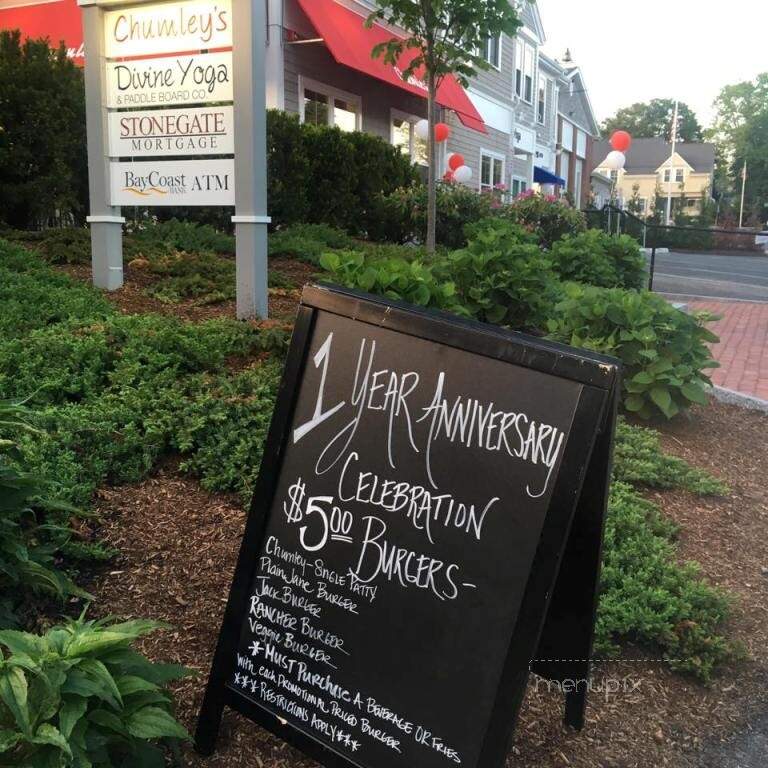 Chumley's
Divine Yoga
& PADDLE BOARD CO.
STONEGATE
MORTGAGE
BayCoast
BANK
ATM
1 YEAR ANNIVERSARY
CELEBRATION
$5.00 BURGERS-
Chumley - Single Patty
Plain Jane BURGER
Jack BURGER
RANCHER BURGER
Veggie BURGER
*MUST PURCHASE A BEVERAGE OR FRIES
with each PROMOTIONAL PRICED BURGER
***RESTRICTIONS APPLY***
menupix